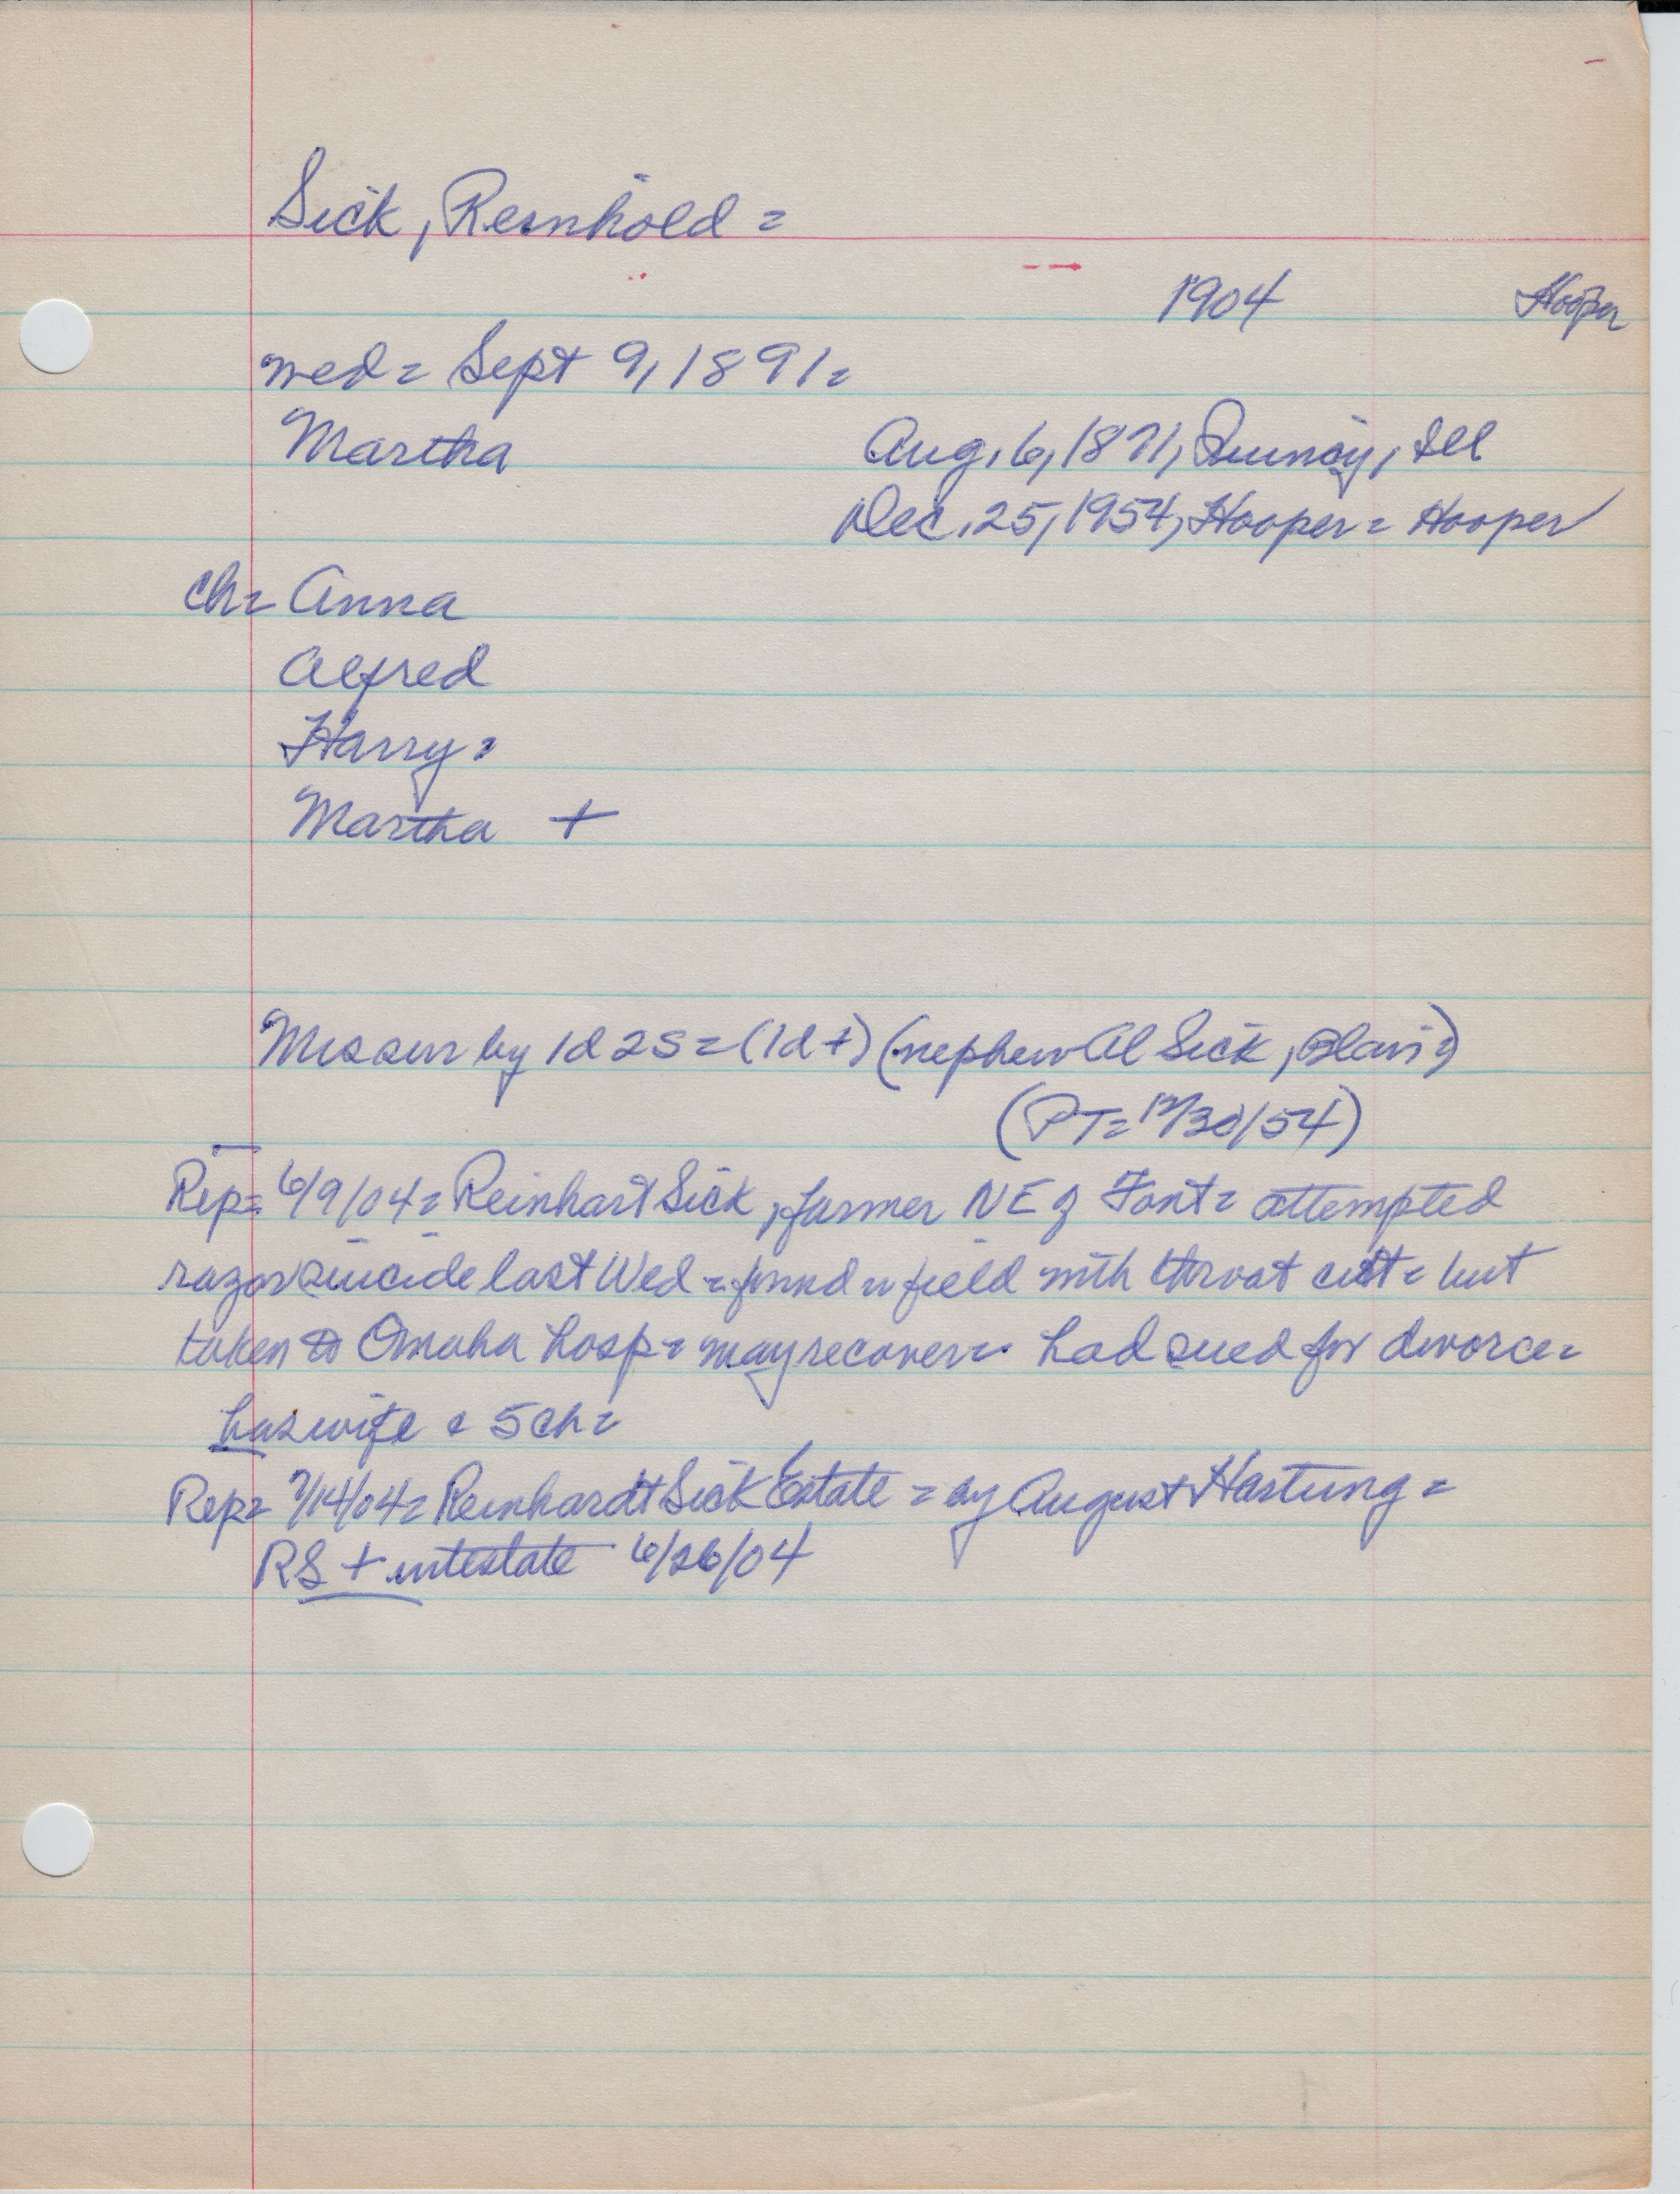 Sick, Reinhold =
1904 Hooper
wed = Sept 9, 1891 =
Martha Aug. 6, 1871, Quincy, Ill
Dec. 25, 1954, Hooper = Hooper
ch = Anna
Alfred
Harry =
Martha +
Mrs sur by 1d 2s = (1d +) (nephew Al Sick, Blair =)
(PT = 12/30/54)
Rep = 6/9/04 = Reinhart Sick, farmer NE of Font = attempted
razor suicide last Wed = found in field with throat cut = but
taken to Omaha hosp = may recover = had sued for divorce =
has wife & 5 ch =
Rep = 7/14/04 = Reinhardt Sick Estate = by August Hartung =
RS + intestate 6/26/04